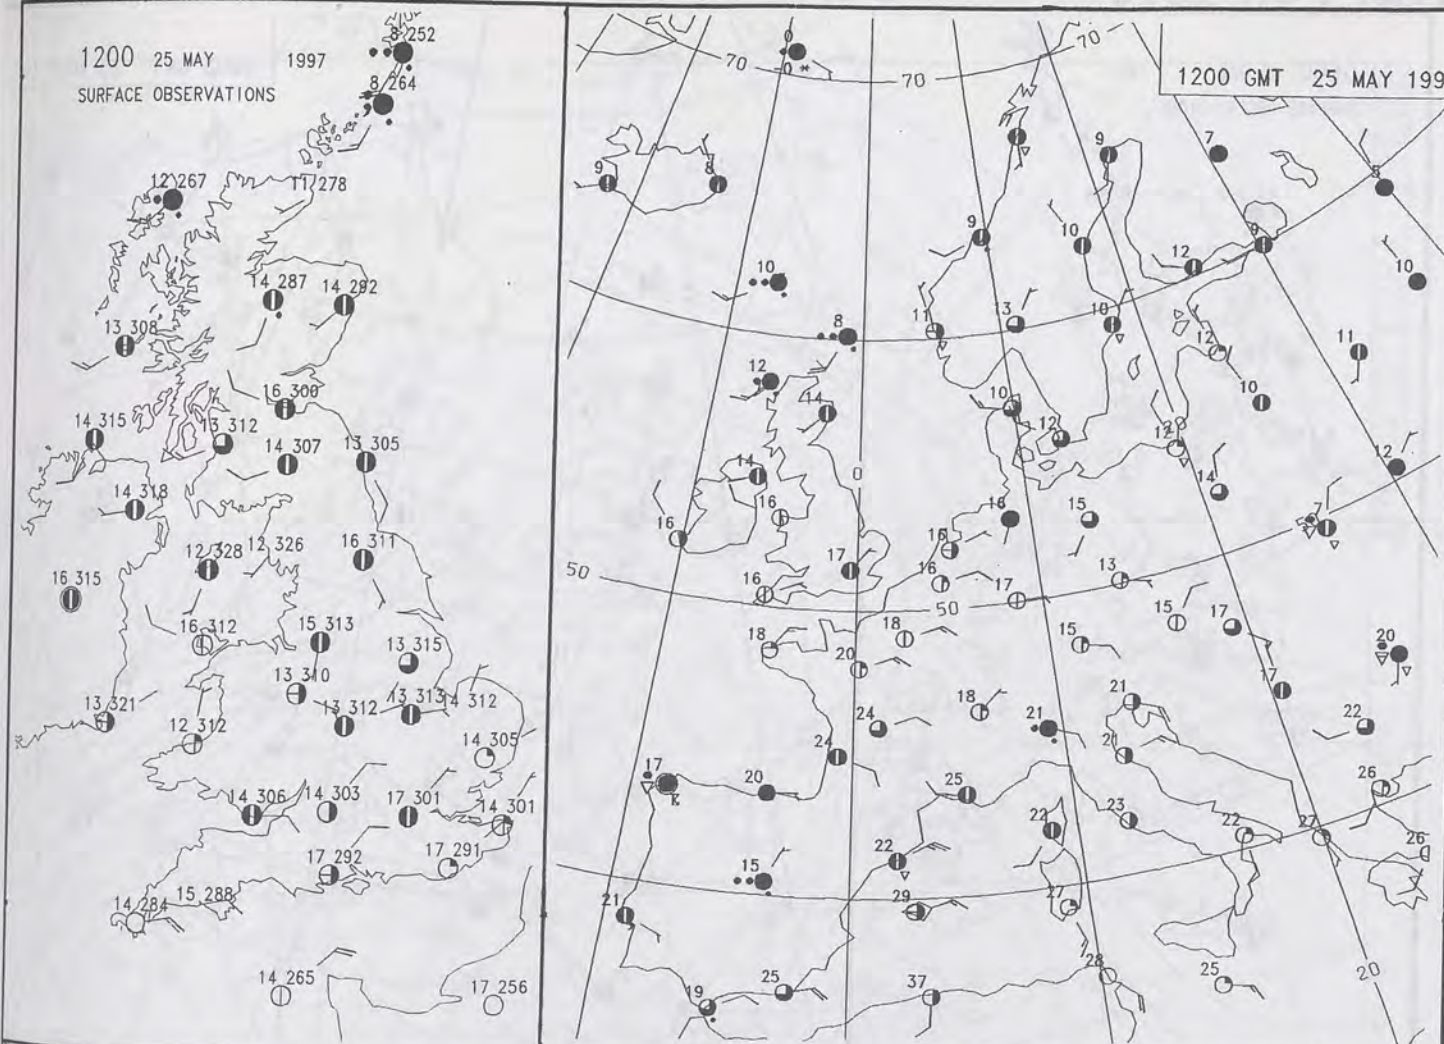 8 252
1200 25 MAY 1997
SURFACE OBSERVATIONS
8 264
12 267
11 278
14 287
14 292
13 308
16 300
14 315
13 312
14 307
13 305
14 318
16 311
12 328
12 326
16 315
16 312
15 313
13 315
13 310
13 321
13 312
13 313
14 312
12 312
14 305
14 306
14 303
17 301
14 301
17 292
17 291
14 284
15 288
14 265
17 256
1200 GMT 25 MAY 199
0
70
70
70
-0 *
9
8
9
7
9
10
9
10
12
10
8
11
13
10
12
11
12
14
10
10
12
12
14
0
14
16
16
16
15
12
7
50
17
16
16
16
17
13
50
18
18
20
15
15
17
20
17
18
21
21
22
24
24
21
17
20
25
26
22
23
22
27
26
22
15
29
27
21
28
25
37
25
19
20